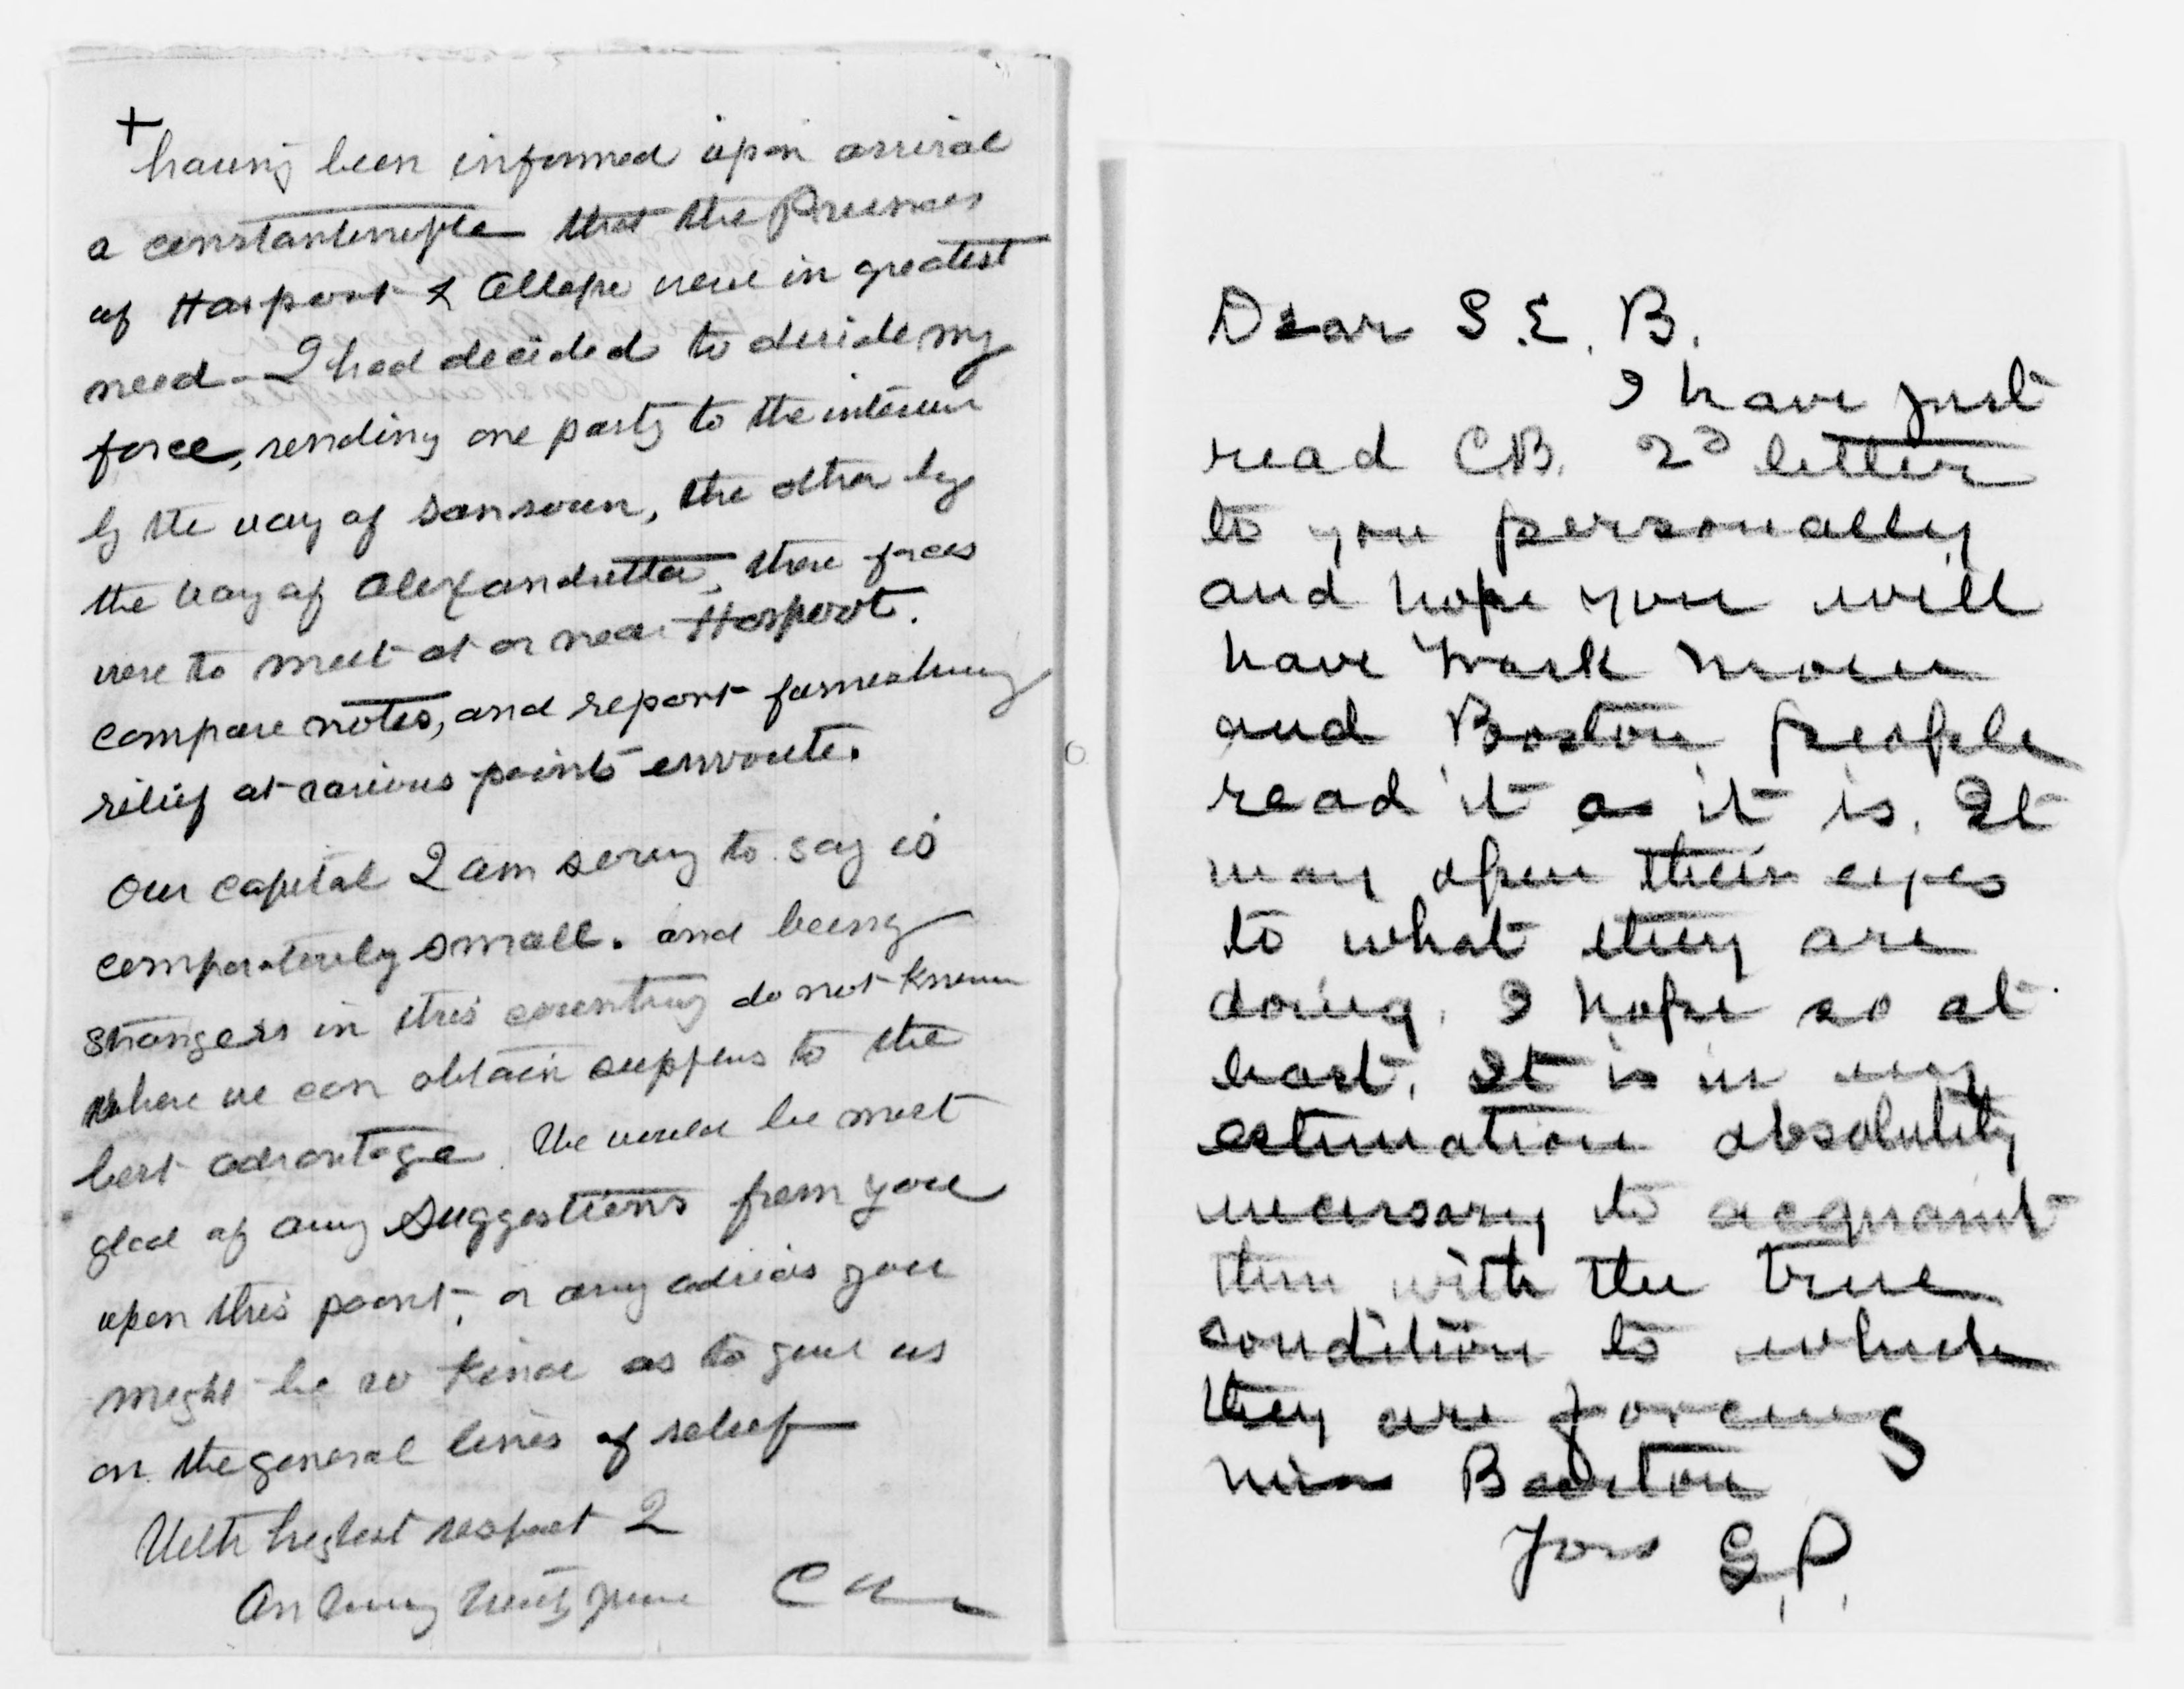 +
having been informed upon arrival
a constantinople that the Provinces
of Harpoot & Alleppo were in greatest
need - I had decided to divide my
force, sending one party to the interior
by the way of Samsoun, the other by
the way of Alexandretta, these forces
were to meet at or near Harpoot.
compare notes, and report furnishing
relief at various points enroute.
Our capital I am sorry to say is
comparatively small. and being
strangers in this country do not know
where we can obtain supplies to the
best advantage. We would be most
glad of any suggestions from you
upon this point, or any advice you
might be so kind as to give us
on the general lines of relief
With highest respect I
am very truly yours C B
Dear S.E.B.
I have just
read C.B. 2d letter
to you personally
and hope you will
have
and Boston people
read it as it is. It
may open their eyes
to what they are
doing. I hope so at
least. It is in my
estimation absolutely
necessary to acquaint
them with the true
condition to which
they are forcing
Miss Barton
Yors G.P.